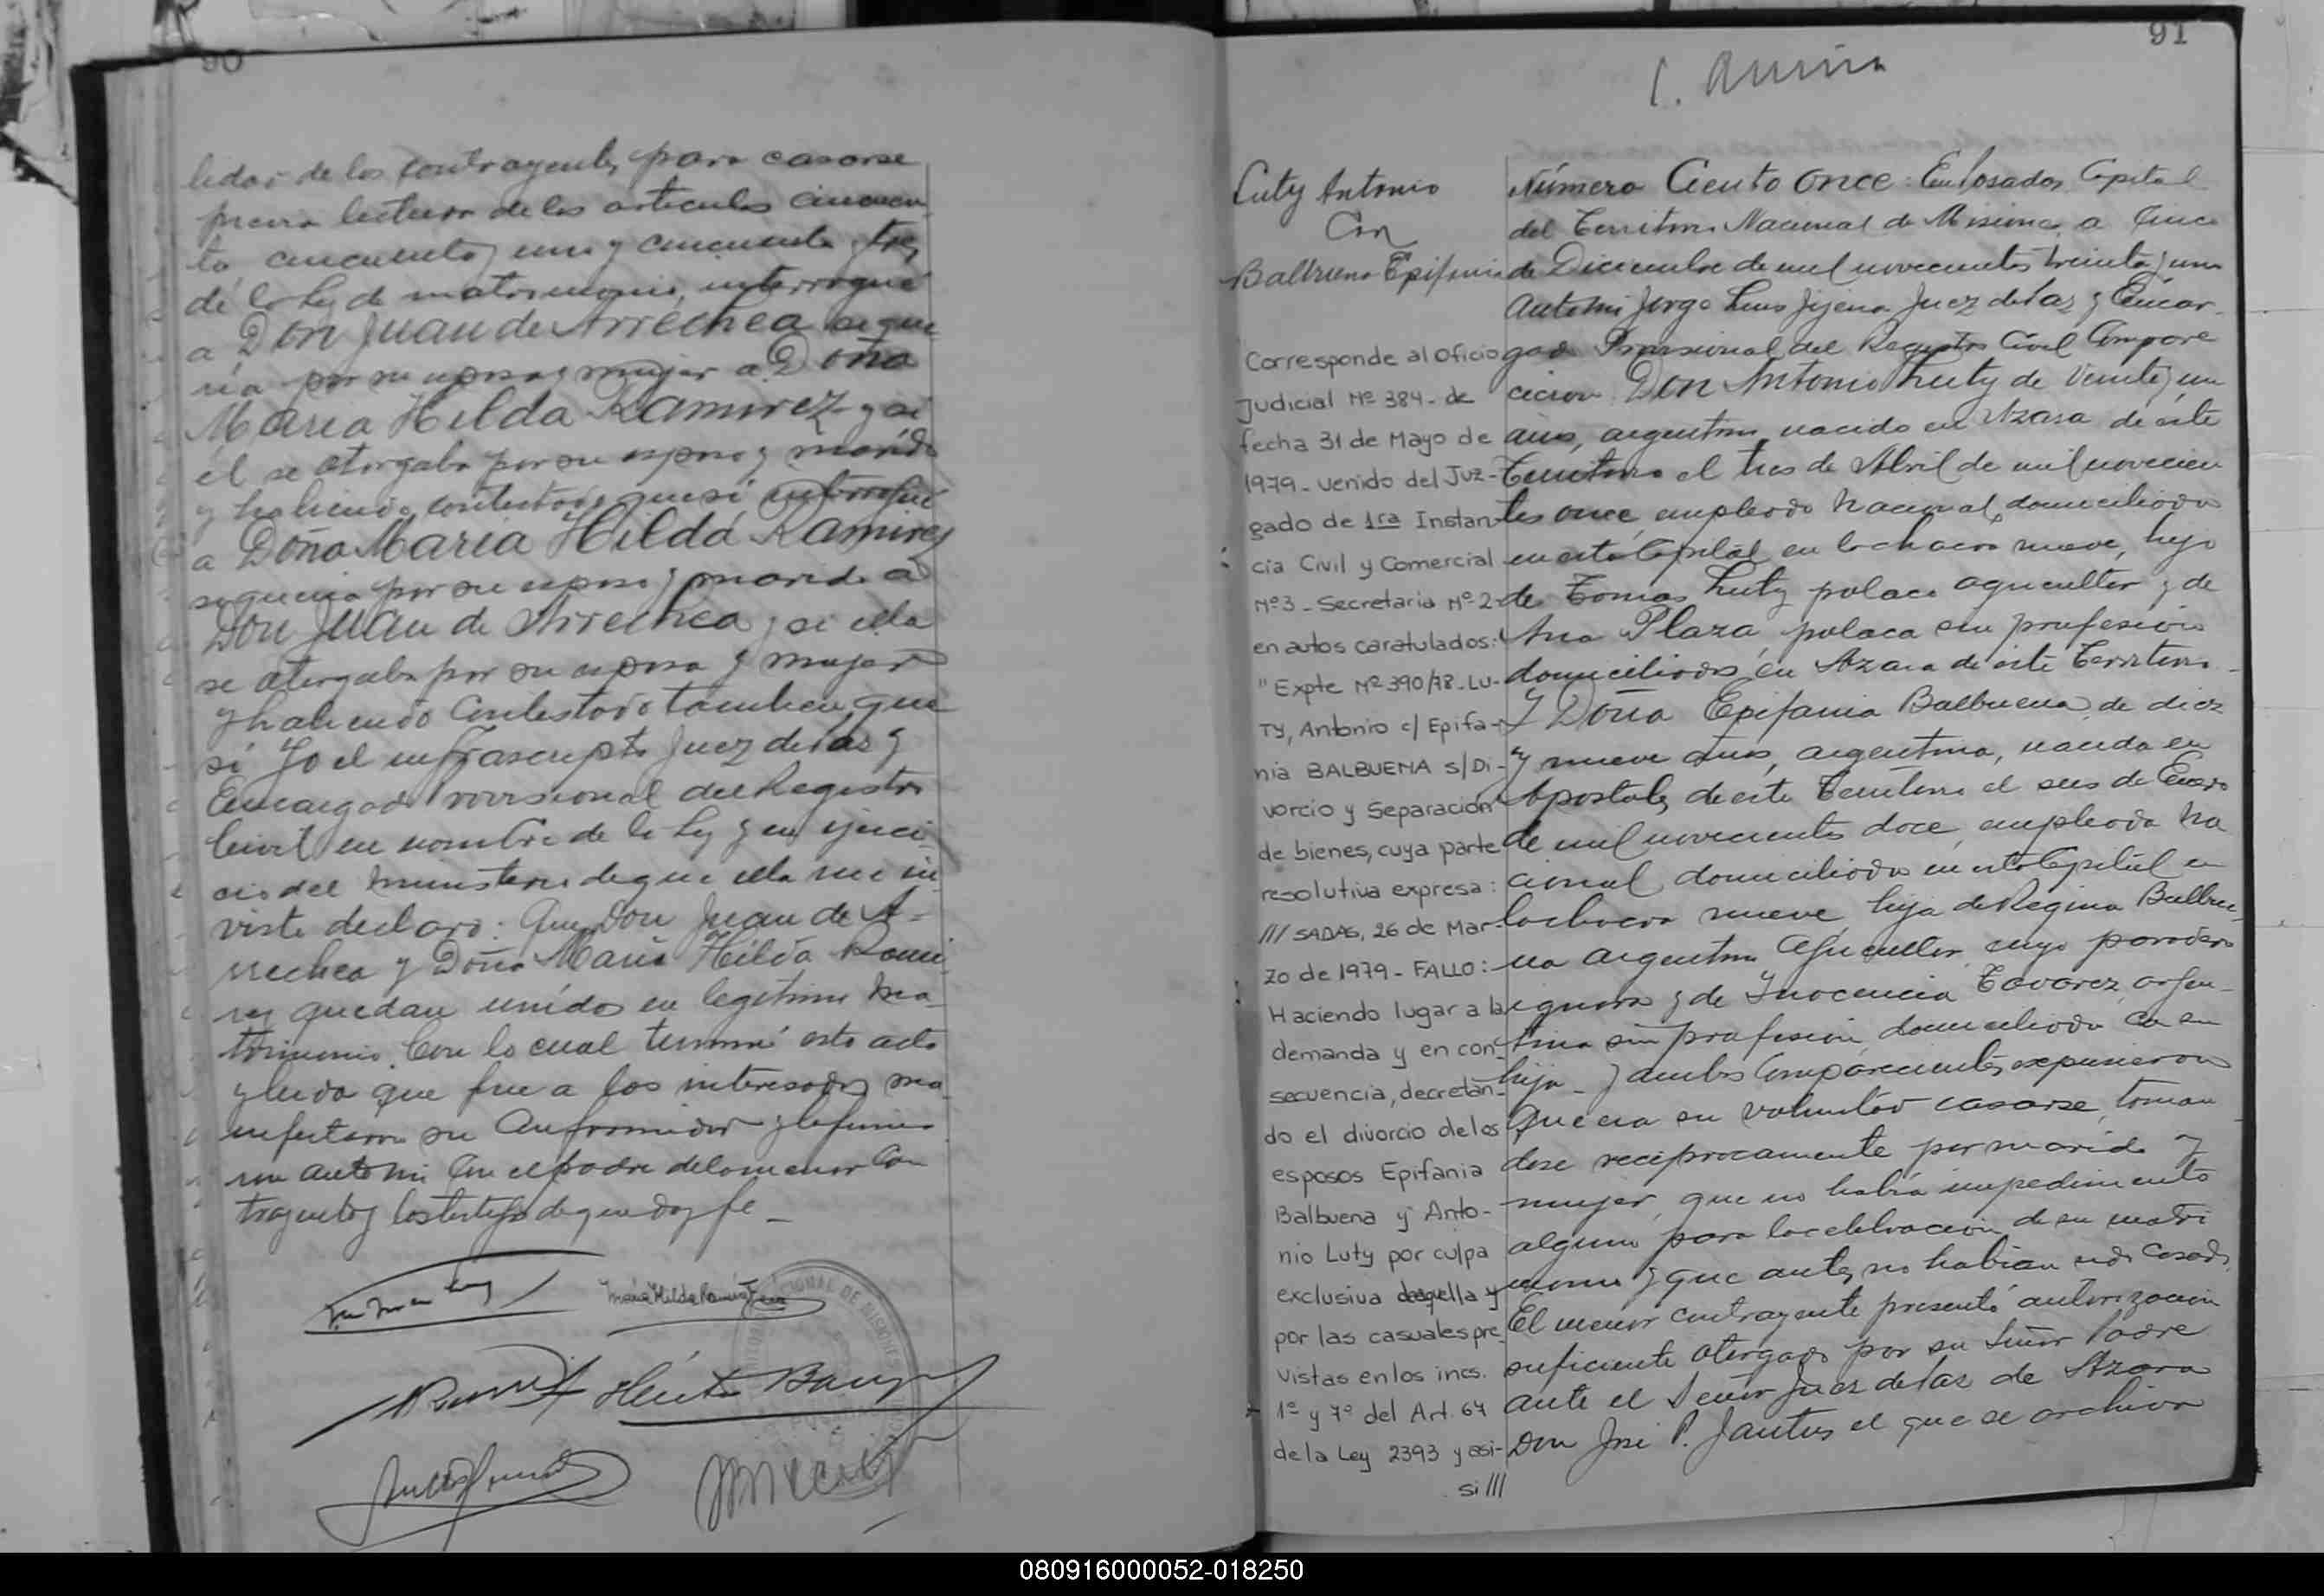 90
lidad de los contrayentes para casarse
previa lectura de los articulos cincuen
ta, cincuenta y uno y cincuenta y tres
de la Ley de matrimonio, interrogué
a Don Juan de Arrechea si que
ria por su esposa y mujer a Doña
Maria Hilda Ramirez y si
él se otorgaba por su esposo y marido
y habiendo contestado que si interrogué
a Doña Maria Hilda Ramirez
si queria por su esposo y marido a
Don Juan de Arrechea y si ella
se otorgaba por su esposa y mujer
y habiendo contestado tambien que
si Yo el infrascripto Juez de Paz y
Encargado Provisional del Registro
Civil en nombre de la Ley y en ejerci
cio del ministerio de que ella me in
viste declaro: Que Don Juan de A=
rrechea y Doña Maria Hilda Rami
rez quedan unidos en legitimo ma
trimonio. Con lo cual terminó este acto
y leida que fue a los interesados ma
nifestaron su conformidad y la firma
ron ante mi con el padre de la menor con
trayente y los testigos de que doy fe _
Maria Hilda Ramirez
91
Luty Antonio
Con
Balbuena Epifania
Corresponde al Oficio
Judicial Nº 384- de
fecha 31 de Mayo de
1979- venido del Juz-
gado de 1ra Instan-
cia Civil y Comercial
Nº3 - Secretaria Nº-2-
en autos caratulados:
" Expte Nº 390/78-LU-
TY, Antonio c/ Epifa-
nia BALBUENA S/Di-
vorcio y Separación
de bienes, cuya parte
resolutiva expresa:
/// SADAS, 26 de Mar-
zo de 1979 - FALLO:
Haciendo lugar a la
demanda y en con-
secuencia, decretan-
do el divorcio de los
esposos Epifania
Balbuena y Anto-
nio Luty por culpa
exclusiva de aquella y
por las casuales pre
vistas en los incs.
1º y 7º del Art. 67
de la Ley 2393 y asi-
si ///
Número Ciento Once: En Posadas Capital
del Territorio Nacional de Misiones a Cinco
de Diciembre de mil novecientos treinta y uno
Ante mi Jorge Luis Jijena Juez de Paz y Encar-
gado Provisional del Registro Civil Compare
cieron Don Antonio Luty de Veinte y un
años, argentino, nacido en Azara de este
Territorio el tres de Abril de mil novecien
tos once, empleado nacional, domiciliado
en esta Capital en la chacra nueve, hijo
de Tomas Luty polaco agricultor y de
Ana Plaza, polaca sin profesión
domiciliados en Azara de este Territorio-
Y Doña Epifania Balbuena de diez
y nueve años, argentina, nacida en
Apostoles de este Territorio el seis de Enero
de mil novecientos doce, empleada na
cional domiciliada en esta Capital en
la chacra nueve hija de Regino Balbue-
na argentino agricultor cuyo paradero
ignora y de Inocencia Tavarez, argen-
tina sin profesión, domiciliada con su
hija - Y ambos Comparecientes expusieron
Que era su voluntad casarse, toman
dose reciprocamente por marido y
mujer, que no había impedimento
alguno para la celebración de su matri
monio y que antes no habian sido casados
El menor contrayente presentó autorización
suficiente otorgado por su Señor Padre
ante el Señor Juez de Paz de Azara
Don José P. Jantus el que se archiva
080916000052-018250